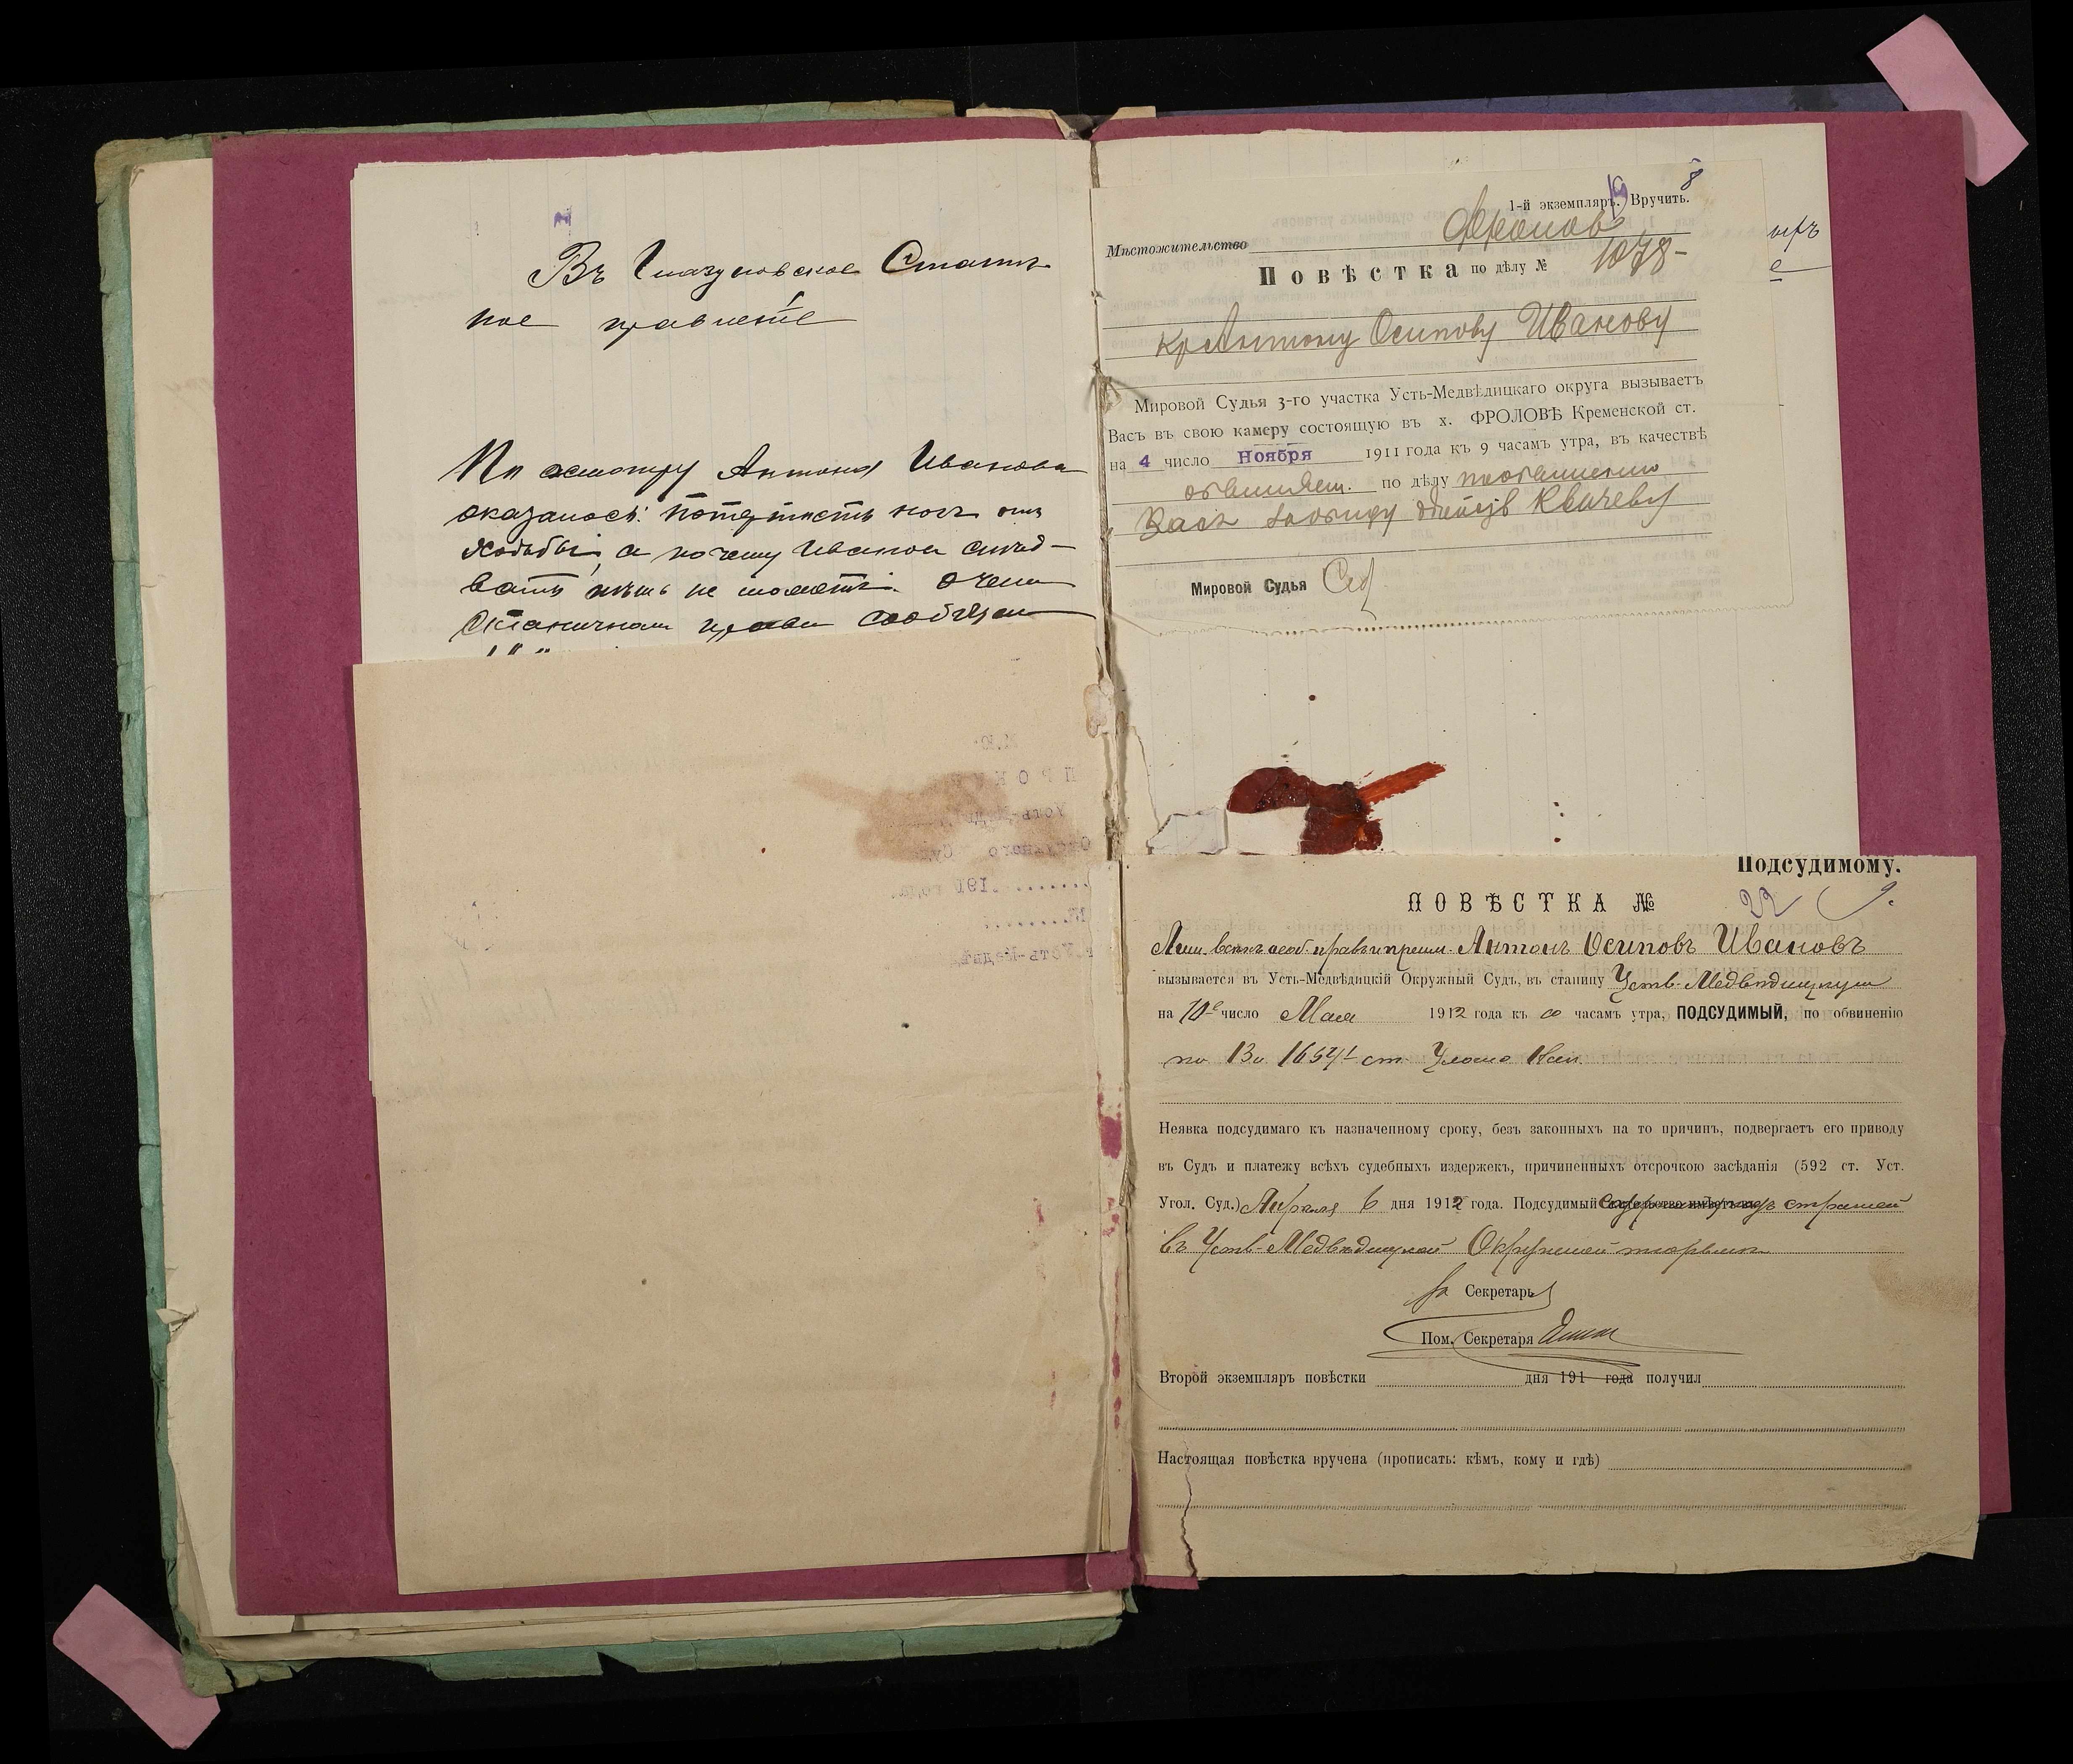 Въ Глазуновское Станич
ное правленіе
По осмотру Антона Иванова
оказалось: потертость ногъ отъ
ходьбы, а почему Иванов слѣдо-
вать пѣшь не можетъ. О чемъ
Станичном правл сообщаю
1-й экземпляръ. Вручить.
8
19
Мѣстожительство Фролов
Повѣстка по дѣлу № 1078-
кр Антону Осипову Иванову
Мировой Судья 3-го участка Усть-Медвѣдицкаго округа вызываетъ
Васъ въ свою камеру состоящую въ х. ФРОЛОВѢ Кременской ст.
на 4 число Ноября 1911 года къ 9 часамъ утра, въ качествѣ
обвиняем. по дѣлу по обвиненію
Васъ
Мировой Судья
Подсудимому.
ПОВѢСТКА № 22 9.
Лиш. всѣхъ особ. правъ и преим. Антонъ Осиповъ Ивановъ
вызывается въ Усть-Медвѣдицкій Окружный Судъ, въ станицу Усть-Медвѣдицкую
на 10е число Мая 1912 года къ 10 часамъ утра, ПОДСУДИМЫЙ, по обвиненію
по 13 и 1654/1 ст. Улож. о Нак.
Неявка подсудимаго къ назначенному сроку, безъ законныхъ на то причин, подвергаетъ его приводу
въ Судъ и платежу всѣхъ судебныхъ издержек, причиненныхъ отсрочкою засѣданія (592 ст. Уст.
Угол. Суд.) Апрѣля 6 дня 1912 года. Подсудимый содержится подъ стражей
въ Усть-Медвѣдицкой Окружной тюрьмѣ
Секретарь
Пом. Секретаря
Второй экземпляръ повѣстки дня 191 года получил
Настоящая повѣстка вручена (прописать: кѣмъ, кому и гдѣ)